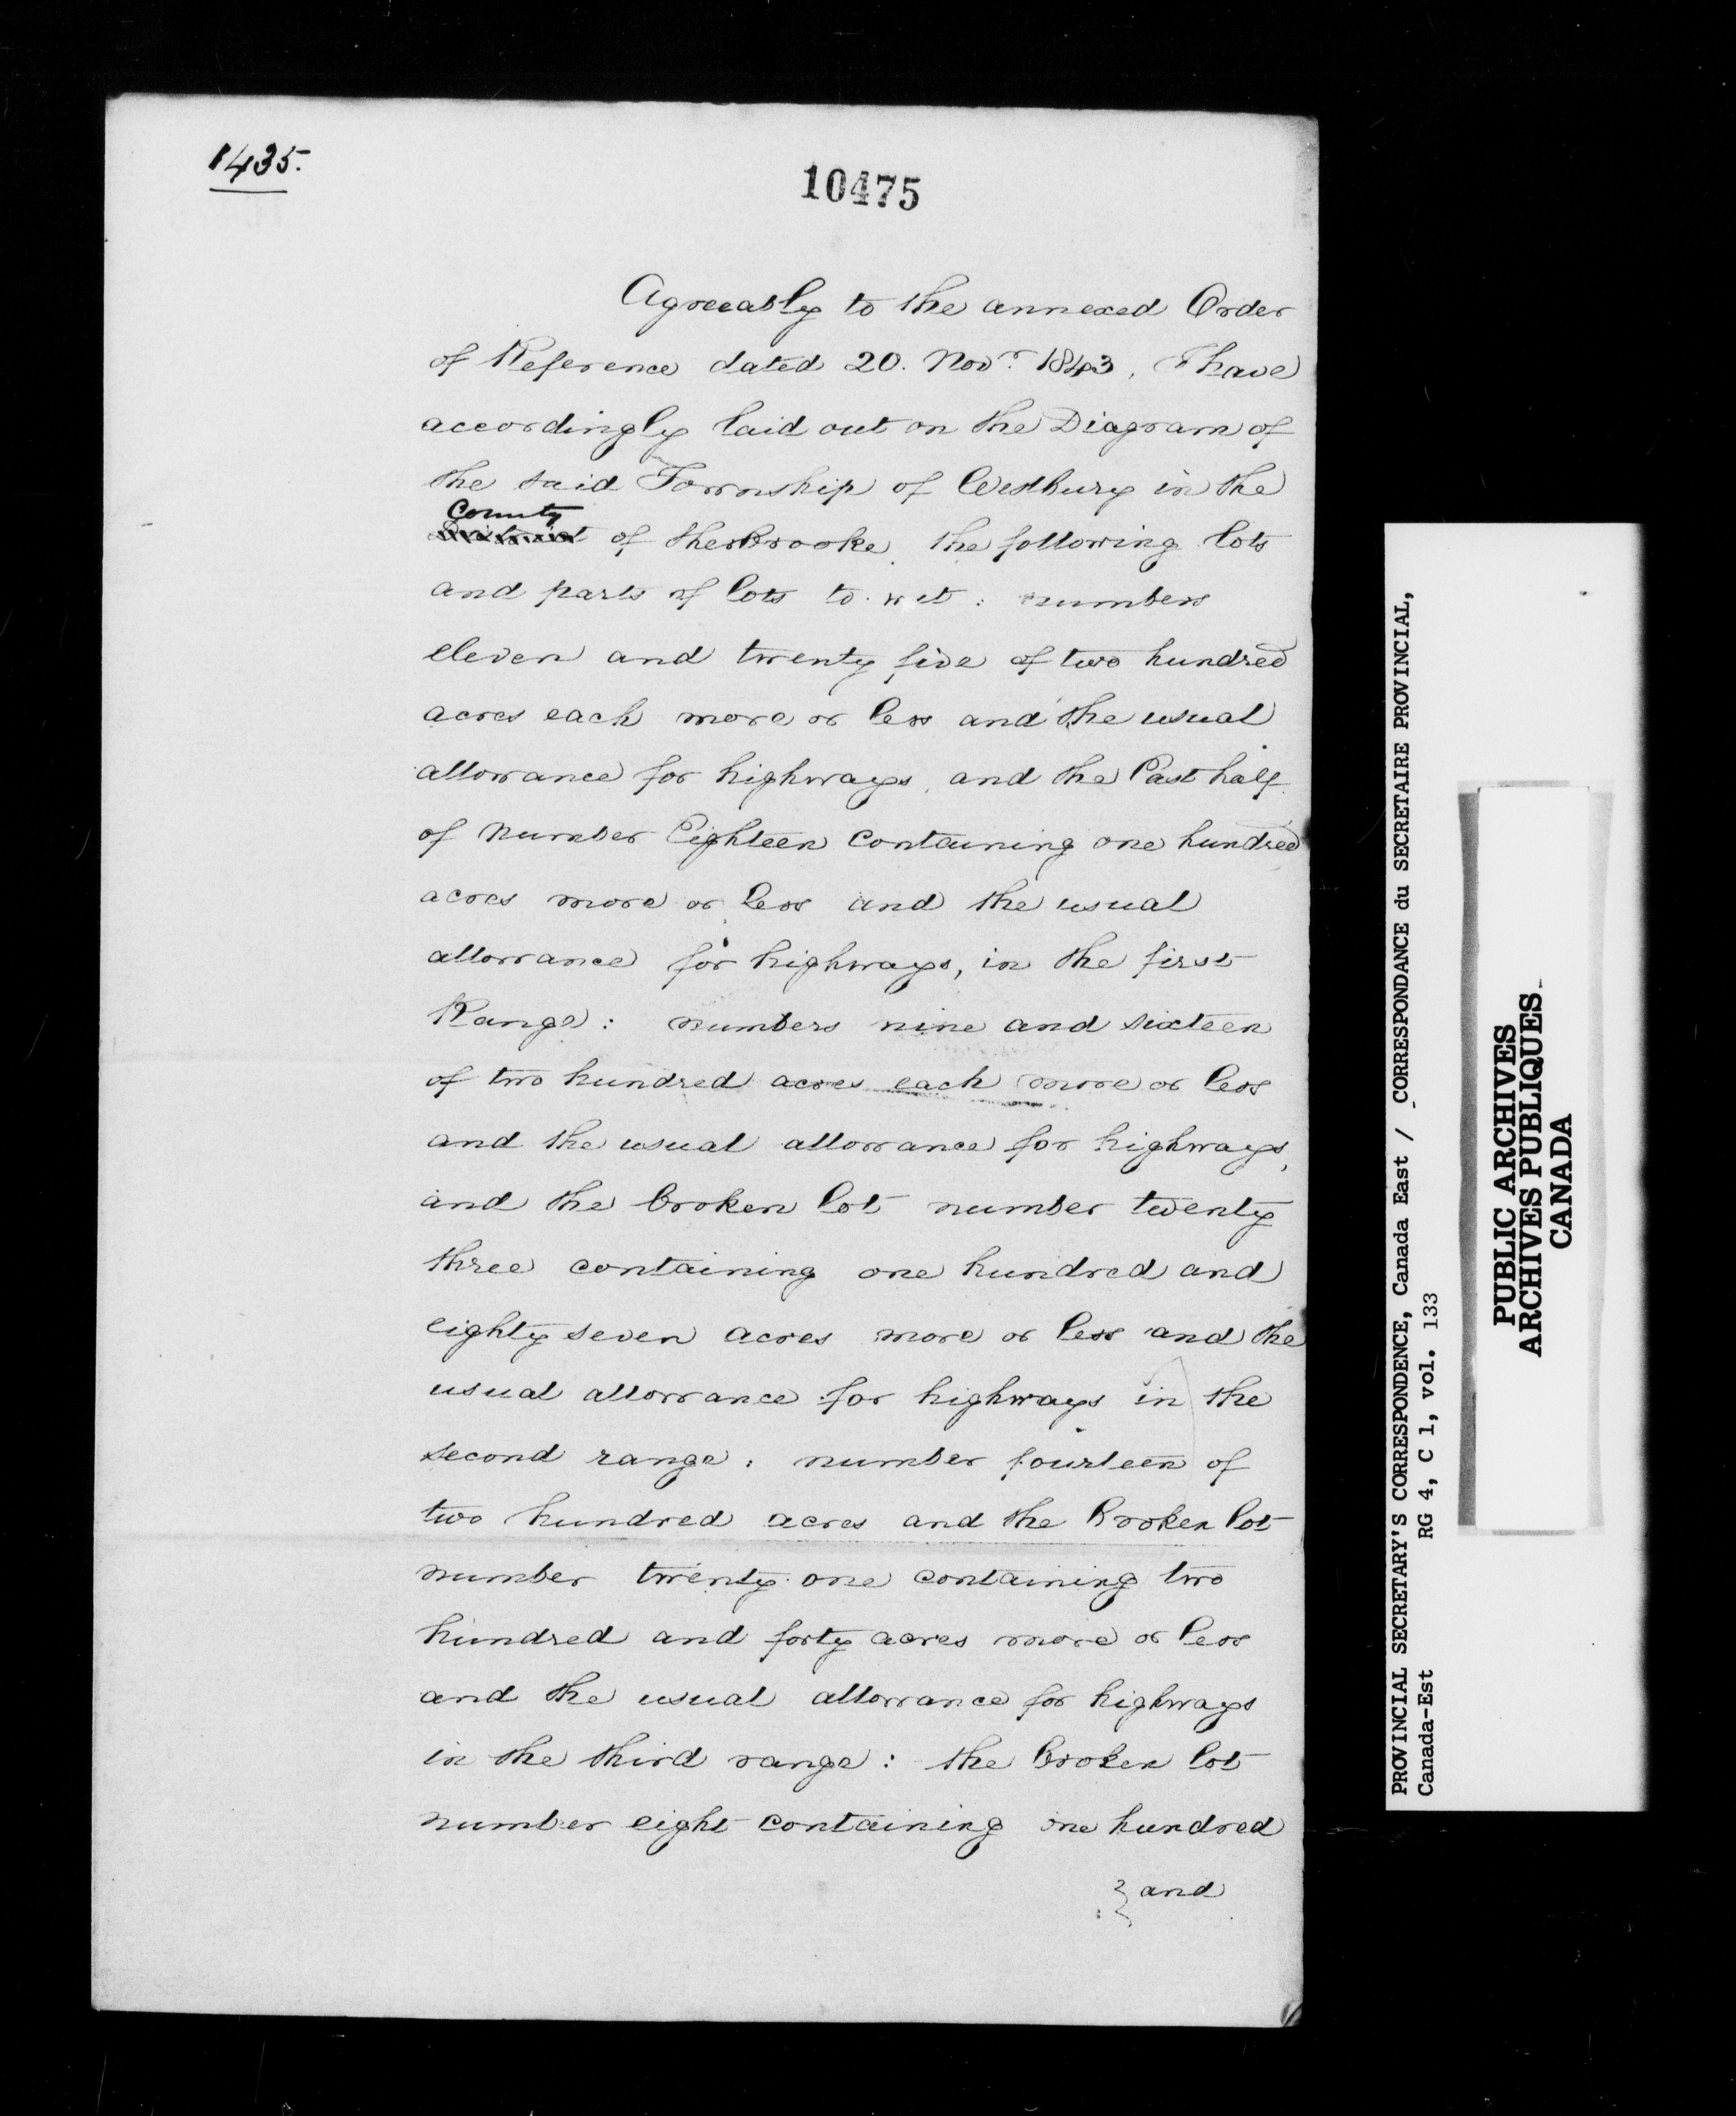 1435.
10475
Agreeably to the annexed Order
of Reference dated 20. Novr. 1843, I have
accordingly laid out on the Diagram of
the said Township of Westbury in the
County
District of Sherbrooke, the following lots
and parts of lots to wit: numbers
eleven and twenty five of two hundred
acres each more or less and the usual
allowance for highways, and the East half
of number Eighteen containing one hundred
acres more or less and the usual
allowance for highways, in the first
Range: numbers nine and sixteen
of two hundred acres each more or less
and the usual allowance for highways,
and the broken lot number twenty
three containing one hundred and
eighty seven acres more or less and the
usual allowance for highways in the
second range: number fourteen of
two hundred acres and the Broken lot
number twenty one containing two
hundred and forty acres more or less
and the usual allowance for highways
in the third range: the broken lot
number eight containing one hundred
and
PROVINCIAL SECRETARY'S CORRESPONDENCE, Canada East / CORRESPONDANCE du SECRETAIRE PROVINCIAL,
Canada-Est RG 4, C 1, vol. 133
PUBLIC ARCHIVES
ARCHIVES PUBLIQUES
CANADA